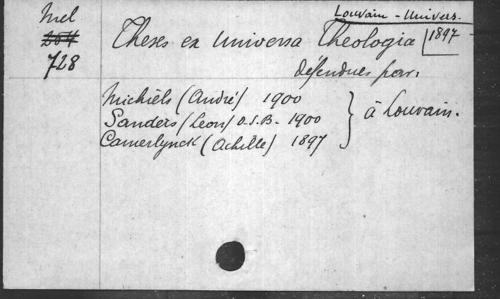 Mel
284
728
Louvain - Univers.
1897
Theses ex Universa Theologia
défendues par:
Michiels (André) 1900
Sanders (Leon) O.S.B. 1900
Camerlynck (Achille) 1897
à Louvain.